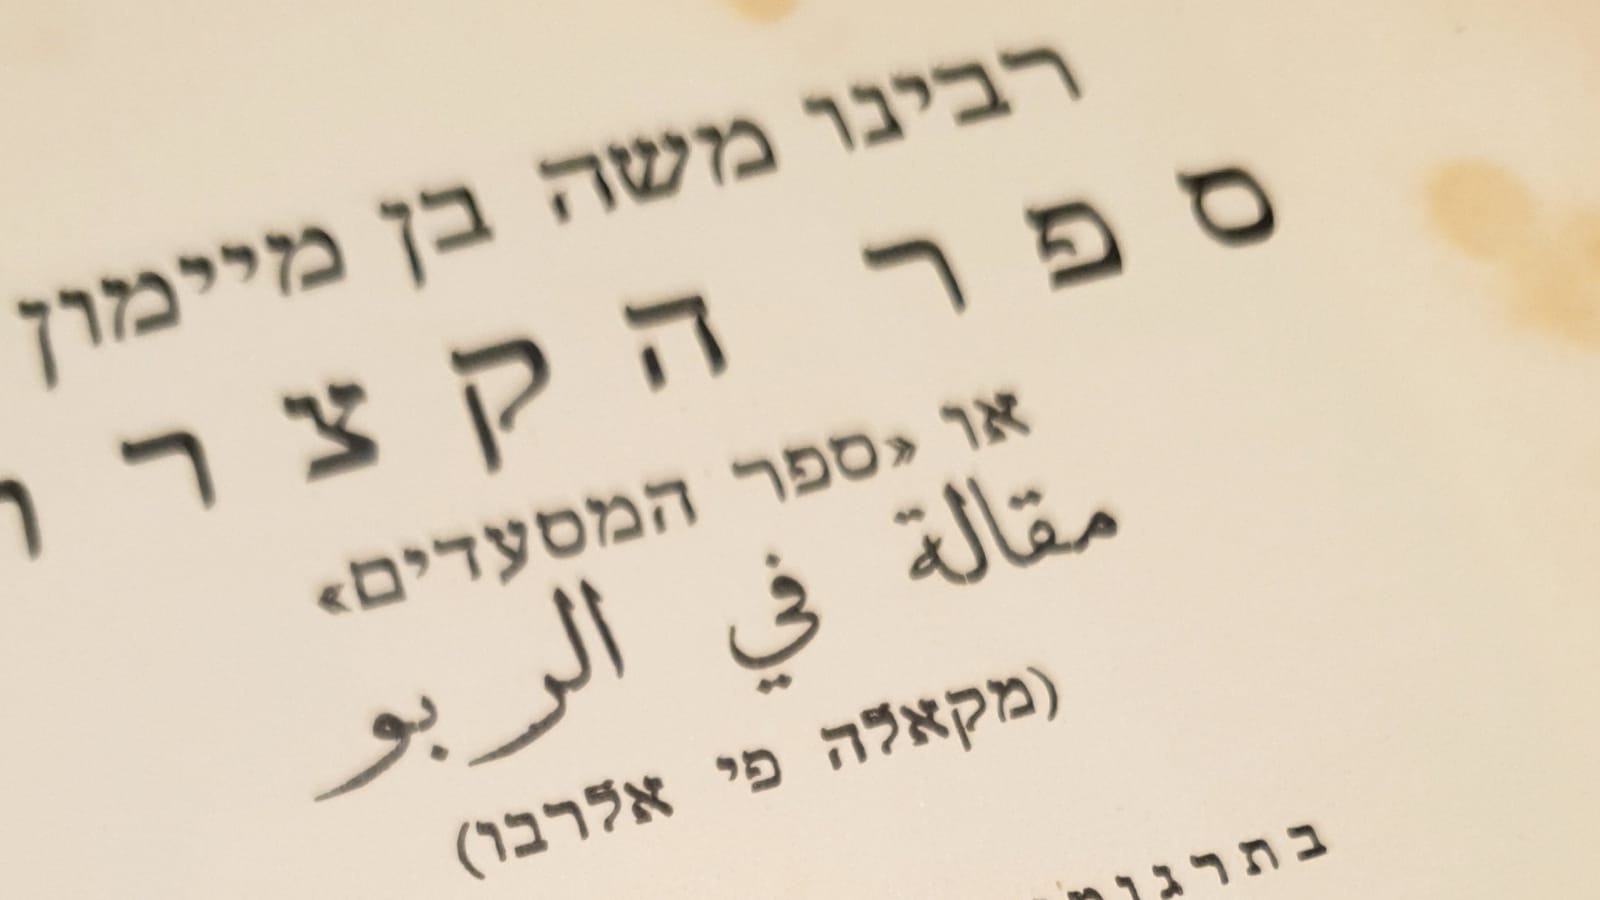 רבינו משה בן מיימון
ספר הקצר
או «ספר המסעדים»
مقالة في الربو
(מקאלה פי אלרבו)